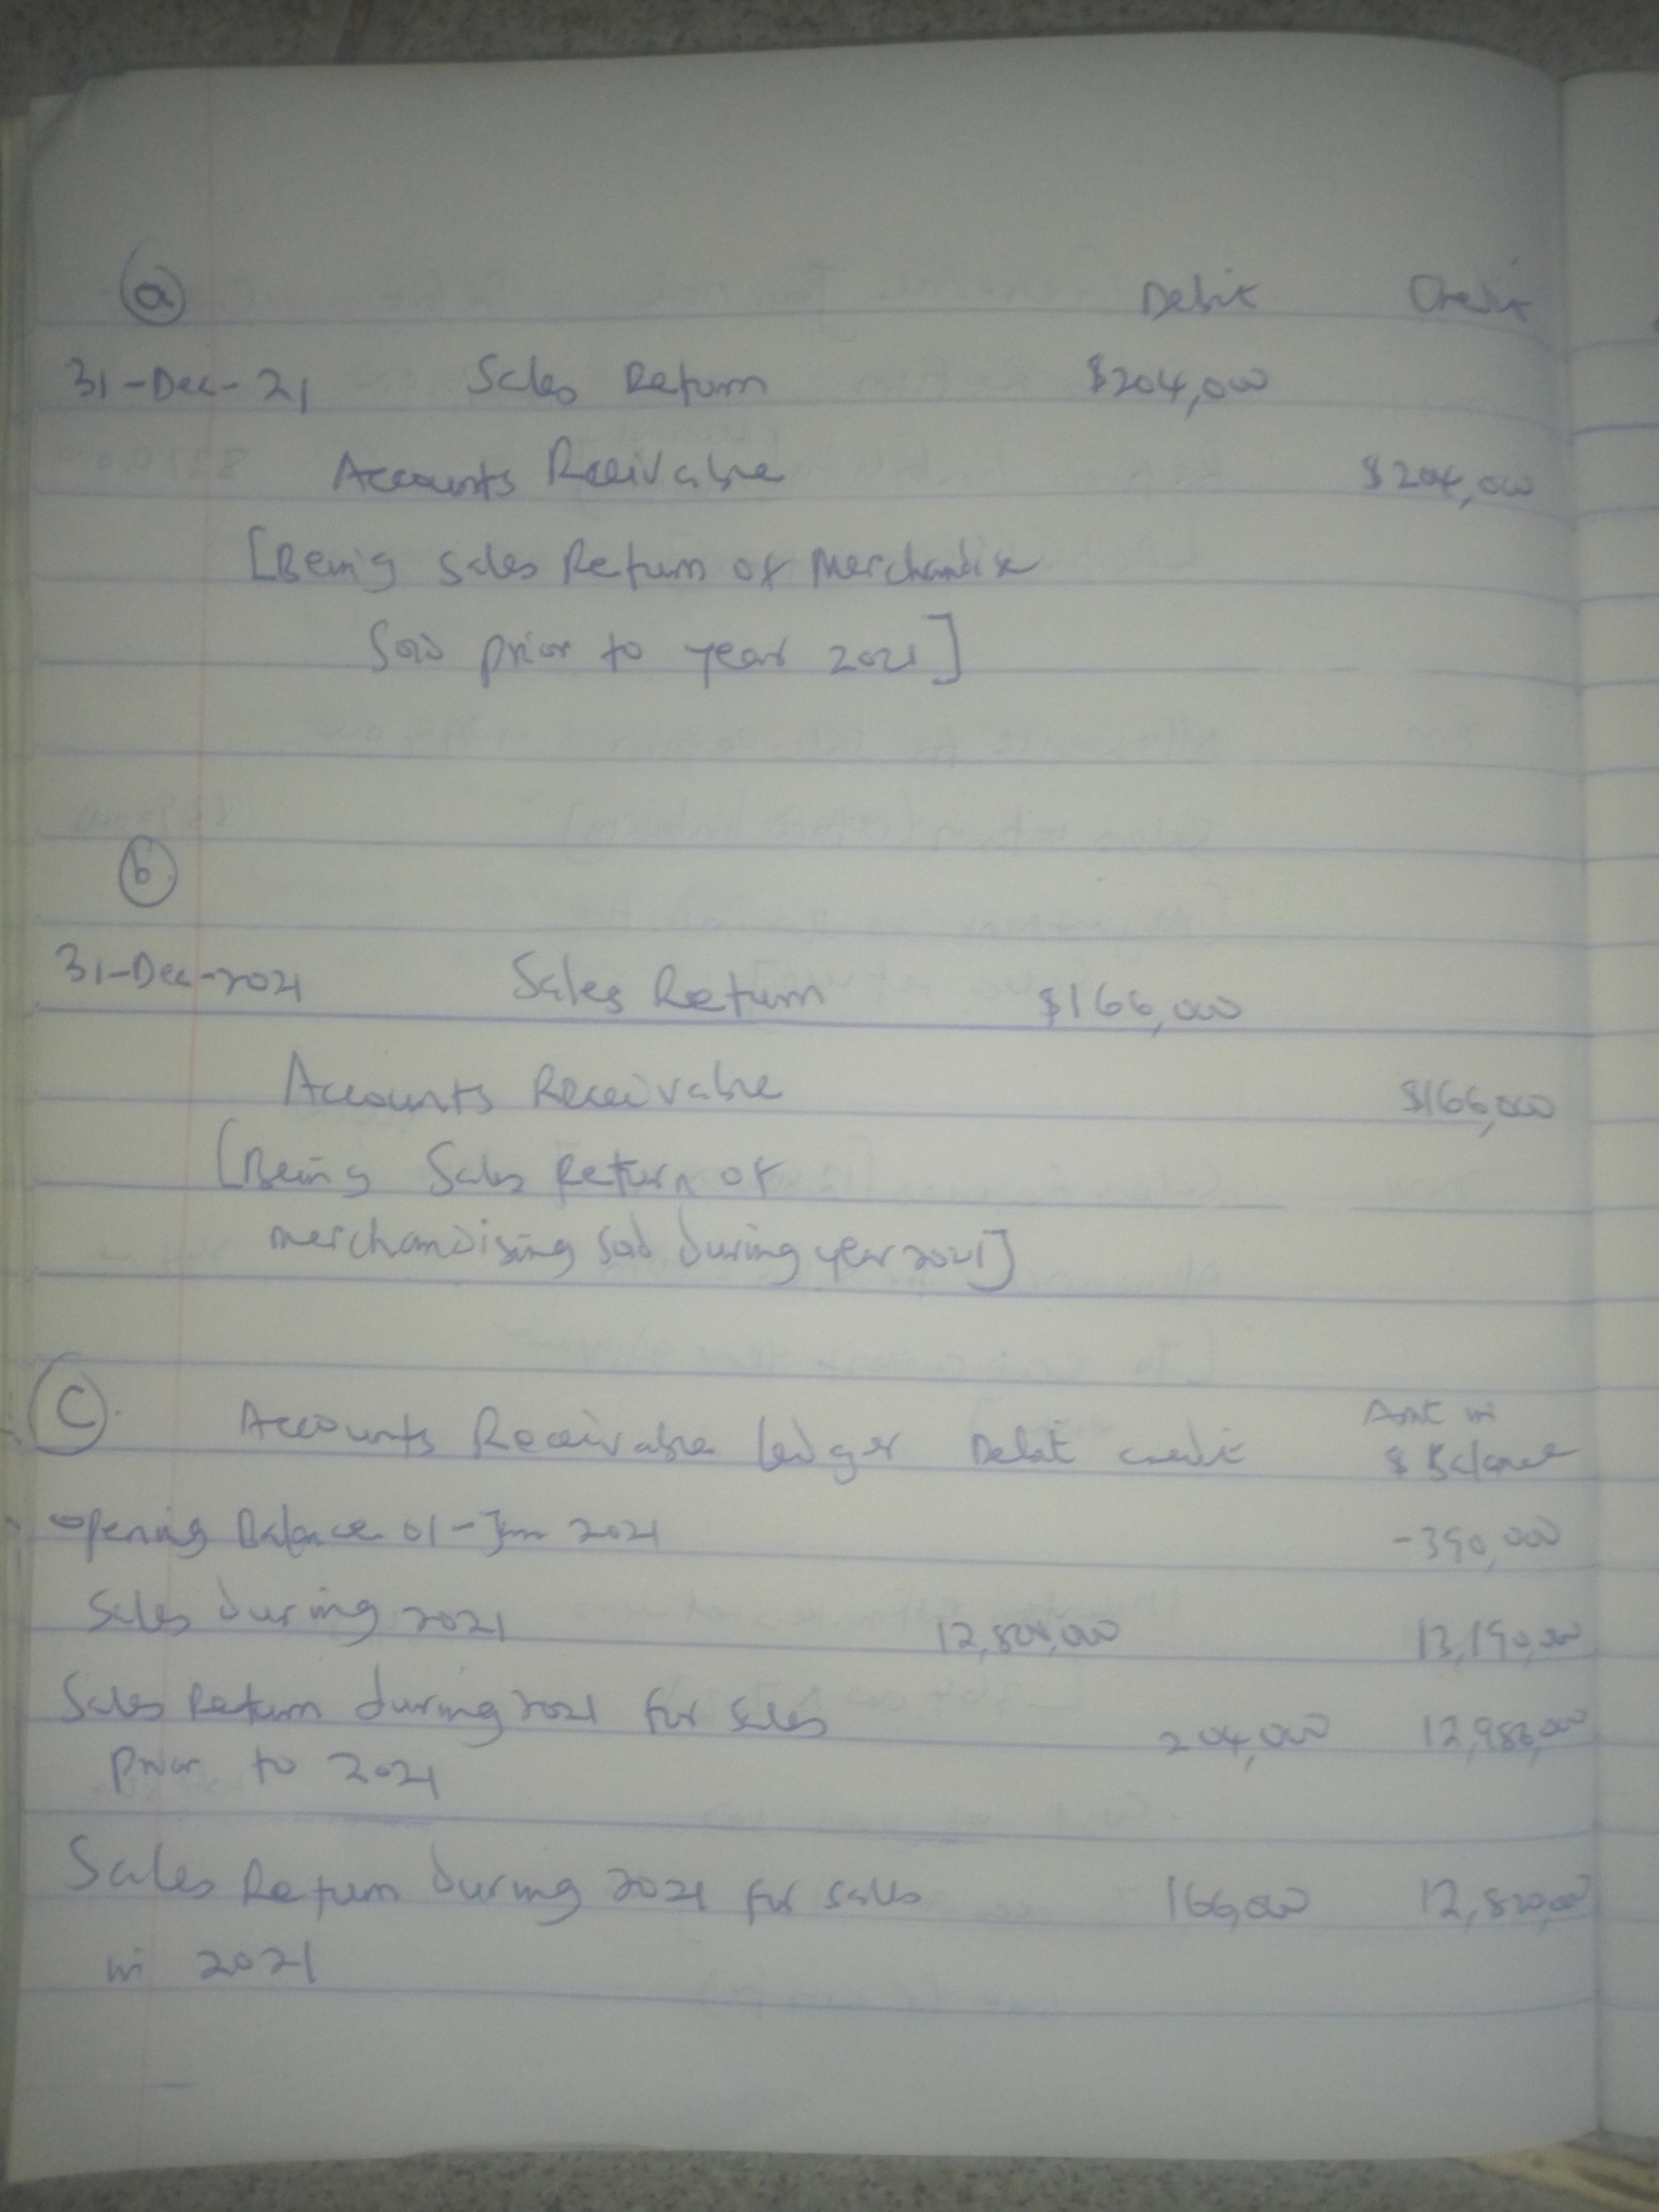 (a) Debit Credit
31-Dec-21 Sales Return $204,000
Accounts Receivable $204,000
[Being Sales Return of Merchandise
Sold prior to year 2021]
(b)
31-Dec-2021 Sales Return $166,000
Accounts Receivable $166,000
[Being Sales Return of
merchandising Sold during year 2021]
(C) Accounts Receivable Ledger Debit credit Amt in
$ Balance
Opening Balance 01-Jan 2021 -390,000
Sales during 2021 13,190,000
Sales Return during 2021 for sales 204,000 12,986,000
prior to 2021
Sales Return during 2021 for sales 166,000 12,820,000
in 2021